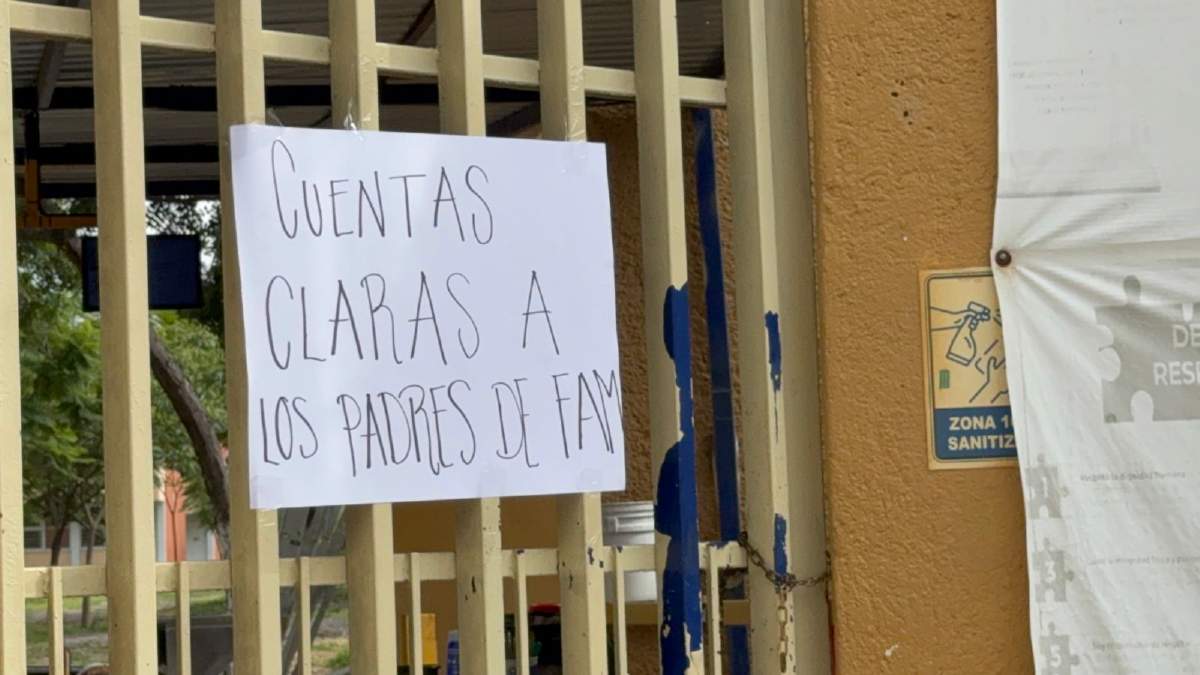 CUENTAS
CLARAS A
LOS PADRES DE FAM
ZONA 1
SANITIZ
DE
RESP
1
3
5